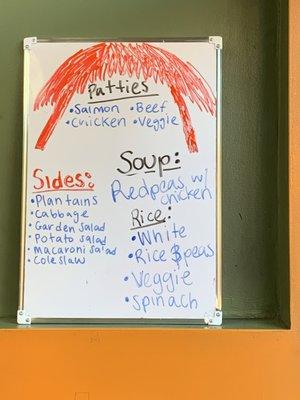 Patties
•Salmon •Beef
•Chicken •Veggie
Soup:
Redpeas w/
chicken
Sides:
•Plantains
•Cabbage
•Garden salad
•Potato salad
•Macaroni salad
•Coleslaw
Rice:
•White
•Rice $peas
•Veggie
•Spinach